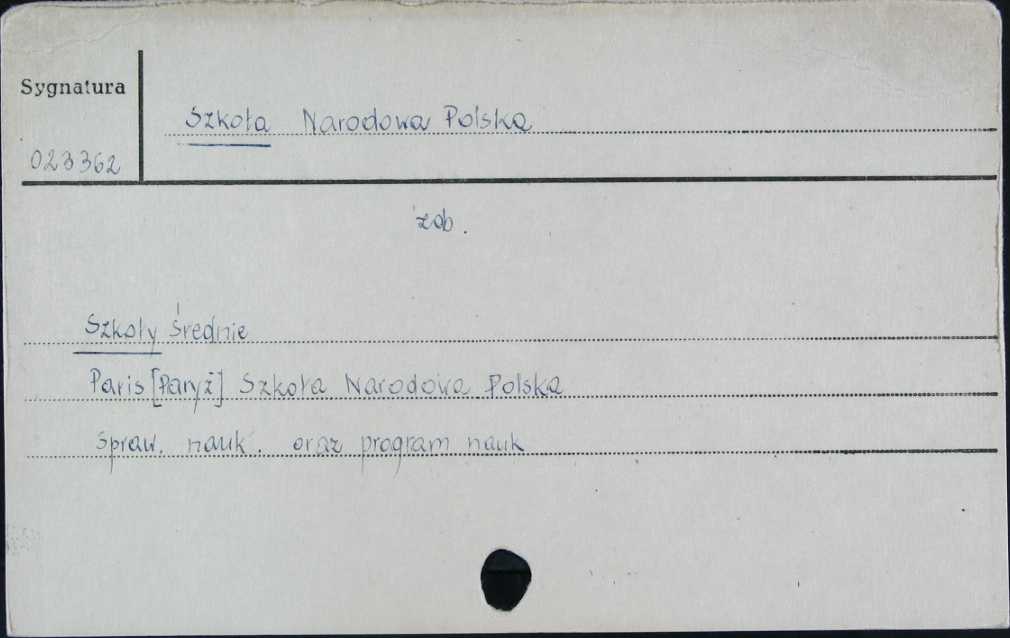 Sygnatura
Szkoła Narodowa Polska
023362
zob.
Szkoły średnie
Paris [Paryż] Szkoła Narodowa Polska
Spraw. nauk. oraz program nauk